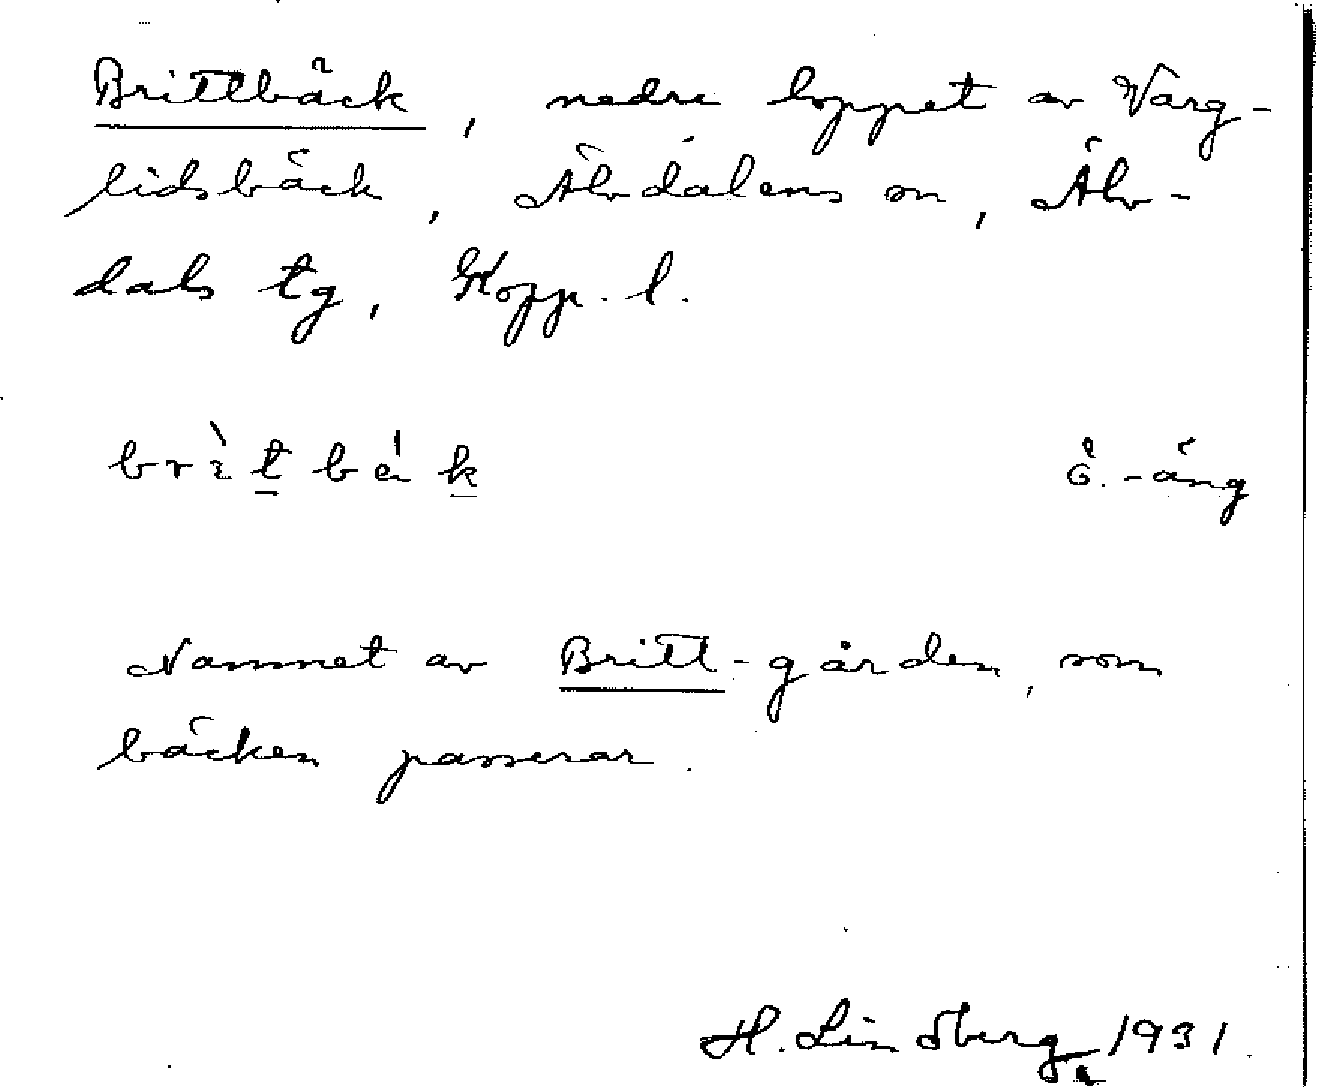 Brittbäck, nedre loppet av Varg-
lidsbäck, Älvdalens sn, Älv-
dals tg, Kopp. l.
brìtbäk Ö.-äng
Namnet av Britt-gården, som
bäcken passerar.
H. Lindberg 1931.